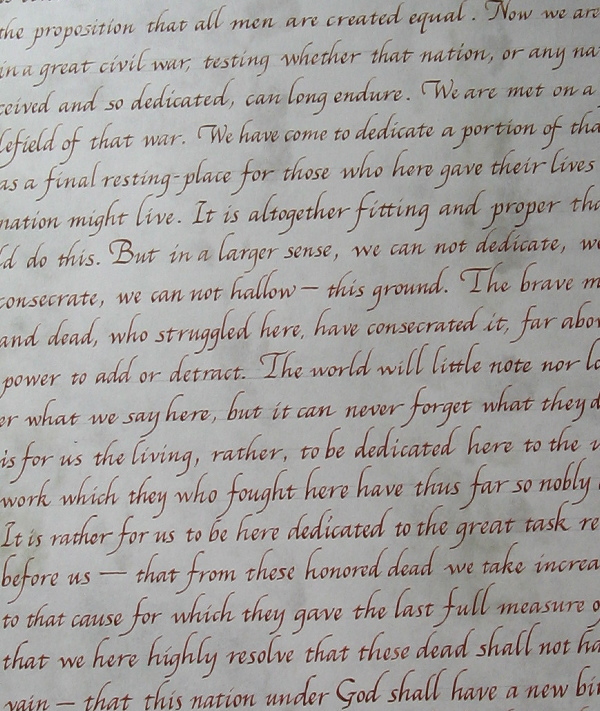 the proposition that all men are created equal. Now we are
in a great civil war, testing whether that nation, or any na
ceived and so dedicated, can long endure. We are met on a
lefield of that war. We have come to dedicate a portion of tha
as a final resting-place for those who here gave their lives
nation might live. It is altogether fitting and proper tha
ld do this. But in a larger sense, we can not dedicate, we
consecrate, we can not hallow — this ground. The brave m
and dead, who struggled here, have consecrated it, far abov
power to add or detract. The world will little note nor lo
er what we say here, but it can never forget what they d
is for us the living, rather, to be dedicated here to the u
work which they who fought here have thus far so nobly
It is rather for us to be here dedicated to the great task re
before us — that from these honored dead we take increa
to that cause for which they gave the last full measure o
that we here highly resolve that these dead shall not ha
vain — that this nation under God shall have a new bir